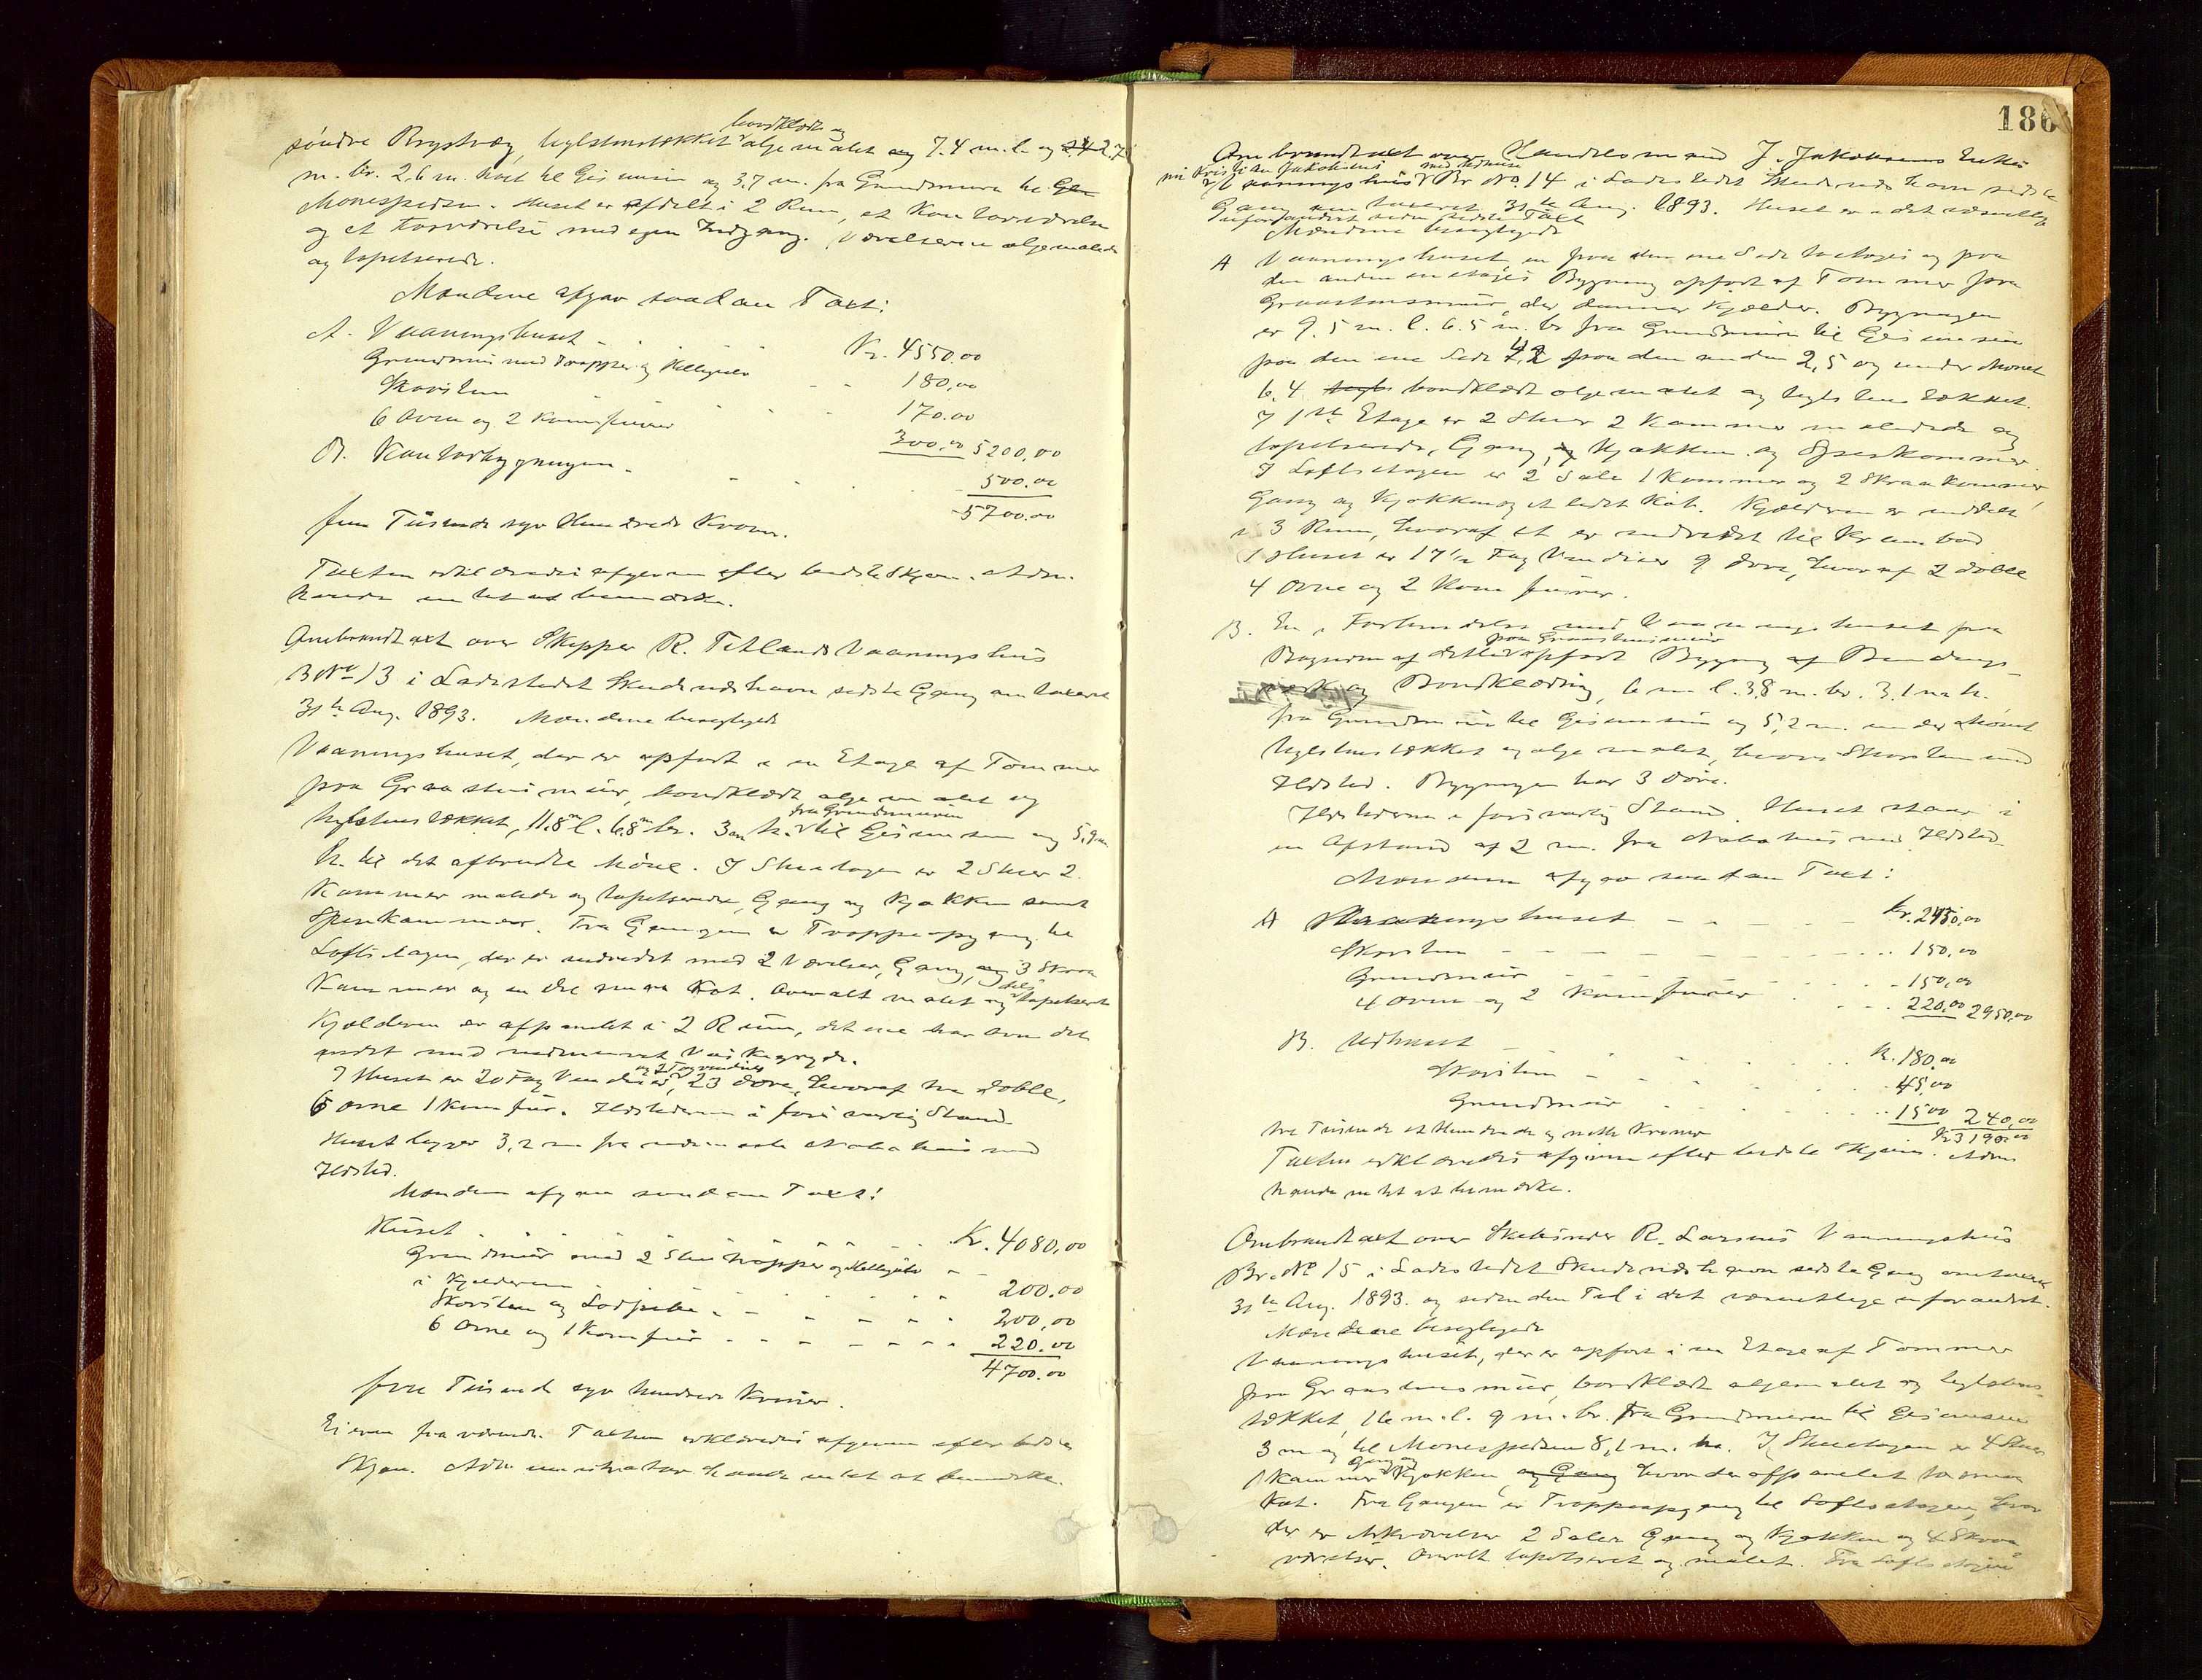 søndre Brystvæg, teglstenstækket bordklædt og oljemalet og 7.4 m. l. og 2.7
m. br. 2.6 m. høit til Gesimsen og 3.7 m. fra Grundmuren til
Mønespidsen. Huset er afdelt i 2 Rum, et Kontorværelse
og et Forværelse med egen Indgang. Værelserne oljemalede
og tapetserede.
Mændene afgav saadan Taxt:
A. Vaaningshuset Kr. 4550.00
Grundmur med Trapper og Hellegulv 180.00
Skorsten 170.00
6 Ovne og 2 Komfurer 300.00 5200.00
B. Kontorbygningen 500.00
5700.00
fem Tusinde syv Hundrede Kroner.
Taxten erklæredes afgiven efter bedste Skjøn. Adm.
havde intet at bemærke.
Ombrandtaxt over Skipper R. Tetlands Vaaningshus
B No 13 i Ladestedet Skudeneshavn sidste Gang omtaxeret
31te Aug. 1893. Mændene besigtigede
Vaaningshuset, der er opført i en Etage af Tømmer
paa Graastensmur, bordklædt oljemalet og
teglstenstækket, 11.8 m l. 6.8 m br. 3 m h. fra Grundmuren til Gesimsen og 5.9 m
h. til det afbrudte Møne. I Stuetagen er 2 Stuer 2
Kammer malede og tapetserede, Gang og Kjøkken samt
Spiskammer. Fra Gangen er Trappeopgang til
Loftsetagen, der er indredet med 2 Værelser, Gang, 3 Skraa
Kammer og en del smaa Kot. Overalt malet og dels tapetseret
Kjælderen er afpanelet i 2 Rum, det ene har ovn det
andet med indmuret Vaskegryde.
I Huset er 20 Fag Vinduer, 23 Døre, hvoraf tre doble,
6 Ovne 1 Komfur. Ildstederne i forsvarlig Stand
Huset ligger 3,2 m fra nærmeste Nabohus med
Ildsted.
Mændene afgav saadan Taxt:
Huset Kr. 4080,00
Grundmur med 2 Stentrapper og Hellegulv
i Kjælderen 200.00
Skorsten og Lodpibe 200,00
6 Ovne og 1 Komfur 220.00
4700.00
fire Tusinde syv hundrede Kroner.
Eieren fraværende. Taxten erklæredes afgiven efter bedste
Skjøn. Administrator havde intet at bemærke.
186
Ombrandtaxt over Handelsmand J. Jakobsens Enkes
Vaaningshus med Udhuse Br No. 14 i Ladestedet Skudeneshavn sidste
Gang omtaxeret 31te Aug. 1893. Huset er i det væsentlige
uforandret siden sidste Taxt
Mændene besigtigede
A Vaaningshuset en paa den ene Side toetages og paa
den anden enetages Bygning opført af Tømmer paa
Graastensmur, der danner Kjælder. Bygningen
er 9.5 m. l. 6.5 m. br fra Grundmuren til Gesimsen
paa den ene Side 4,2 paa den anden 2,5 og under Mønet
6.4 bordklædt oljemalet og teglstenstækket.
I 1ste Etage er 2 Stuer 2 Kammer malede og
tapetserede, Gang, Kjøkken og Spiskammer.
I Loftsetagen er 2 Sale 1 Kammer og 2 Skraakammer,
Gang og Kjøkken og et lidet Kot. Kjælderen er inddelt
i 3 Rum, hvoraf et er indredet til Krambod
I Huset er 17½ Fag Vinduer 9 Døre, hvoraf 2 doble
4 Ovne og 2 Komfurer.
B. En i Forbindelse med Vaaningshuset paa
Bagsiden af dette paa Graastensmur opført Bygning af Bindings
verk og Bordklædning, 6 m l. 3.8 m. br. 3.1 m h.
fra Grundmuren til Gesimsen og 5,2 m. under Mønet
teglstenstækket og oljemalet, hvori Skorsten med
Ildsted. Bygningen har 3 Døre.
Ildstederne i forsvarlig Stand. Huset staar i
en Afstand af 2 m. fra Nabohus med Ildsted
Mændene afgav saadan Taxt:
A Vaaningshuset Kr. 2430,00
Skorsten 150,00
Grundmur 150,00
4 Ovne og 2 Komfurer 220.00 2950,00
B. Udhuset Kr. 180.00
Skorsten 45,00
Grundmur 15 00 240,00
tre Tusinde et Hundrede og nitti Kroner Kr 3190.00
Taxten erklæredes afgiven efter bedste Skjøn. Adm
havde intet at bemærke.
Ombrandtaxt over Skibsreder R. Larsens Vaaningshus
Br. No 15 i Ladestedet Skudeneshavn sidste Gang omtaxeret
31te Aug. 1893. og siden den Tid i det væsentlige uforandret.
Mændene besigtigede
Vaaningshuset, der er opført i en Etage af Tømmer
paa Graastensmur, bordklædt oljemalet og teglstens-
tækket, 16 m. l. 9 m. br. Fra Grundmuren til Gesimsen
3 m og til Mønespidsen 8,1 m. h. I Stuetagen er 4 Stuer
1 Kammer Gang og Kjøkken, og Gang hvor der afpanelet to smaa
Kot. Fra Gangen er Trappeopgang til Loftsetagen, hvor
der er Arkværelse 2 Sale Gang og Kjøkken og 4 Skraa
værelser. Overalt tapetseret og malet. Fra Loftsetagen